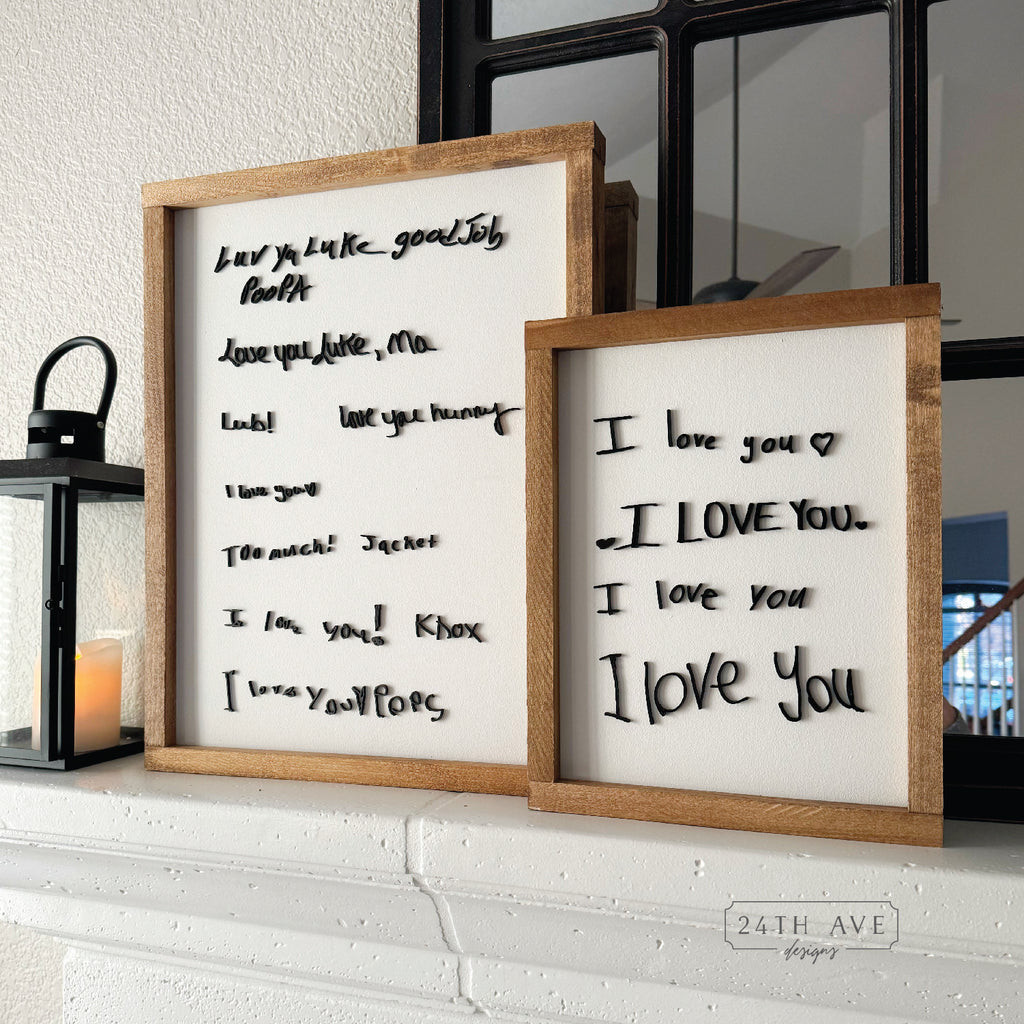 Luv Ya Luke good Job
PooPA
Love you Luke, Ma
Lub!
love you hunny
I love you♥
Too much! Jacket
I love you! Knox
I love You♥ Pops
I love you♡
♥I LOVE YOU.♥
I love you
I love You
24TH AVE
designs